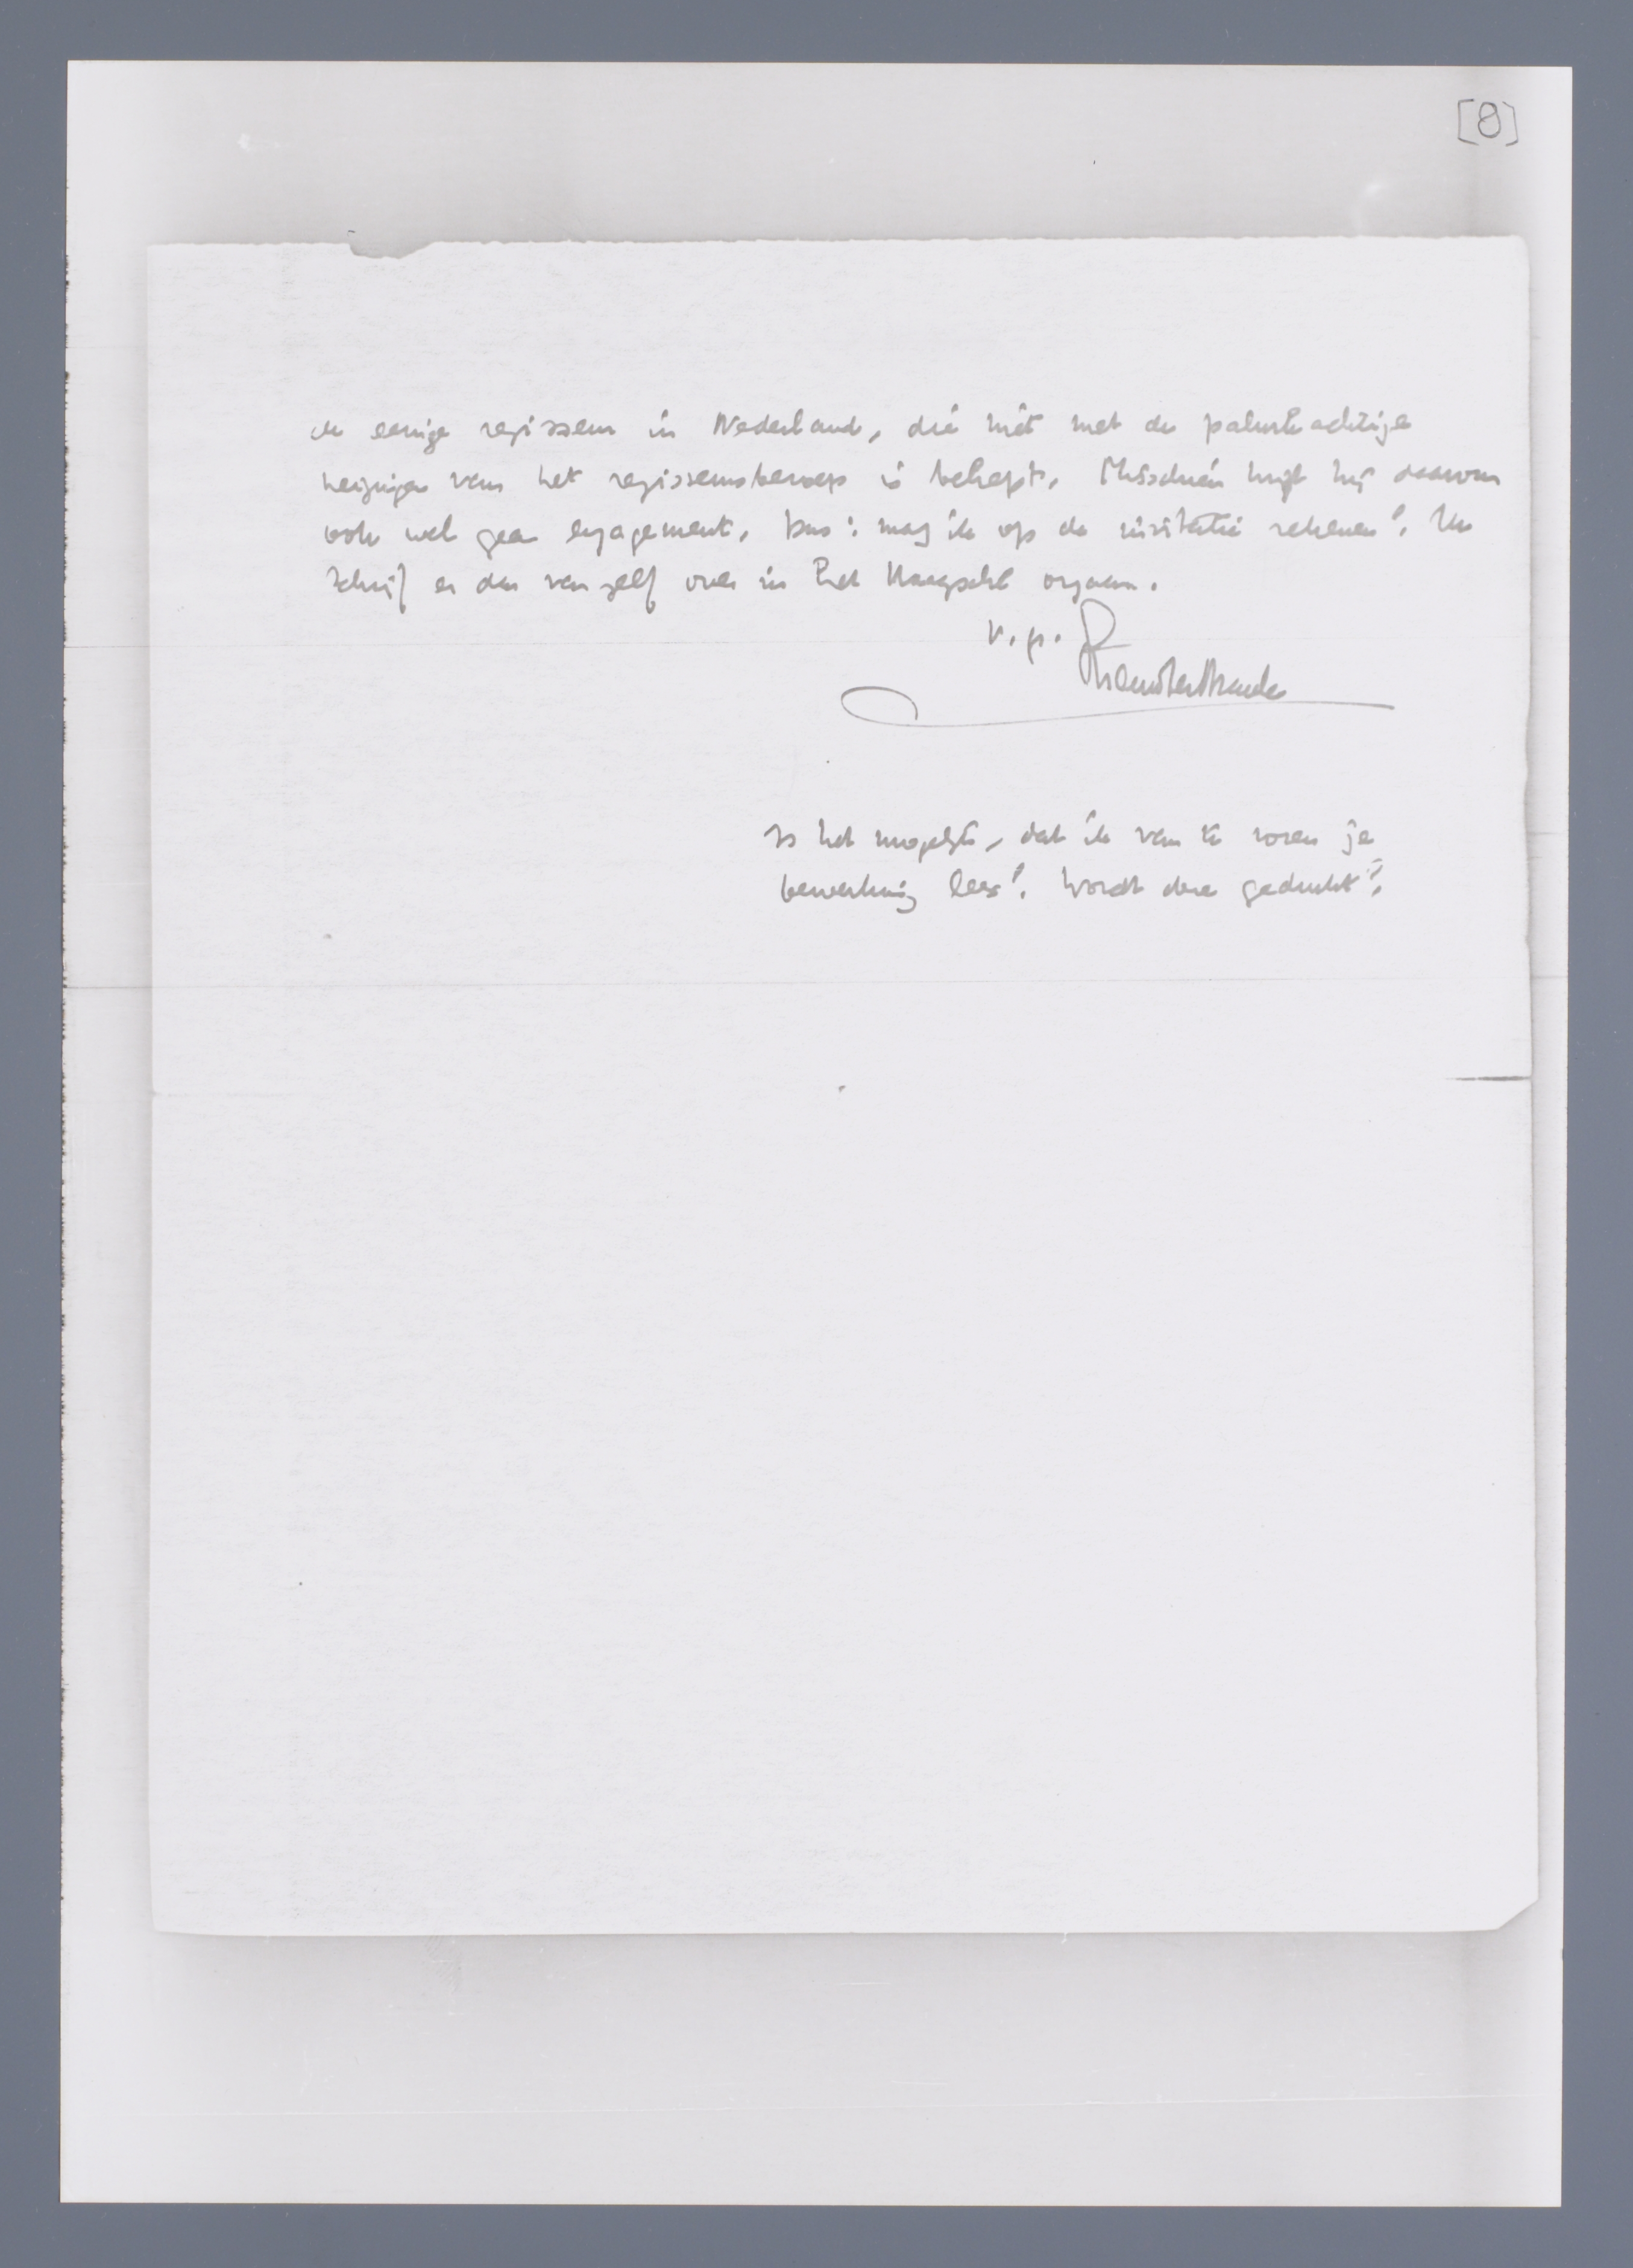 [8]
de eenige regisseur in Nederland, die niet met de paljasachtige
neigingen van het regisseursberoep is behept. Misschien krijgt hij daarom
ook wel geen engagement. Dus: mag ik op de invitatie rekenen? Ik
schrijf er dan vanzelf over in het Haagsche orgaan.
t. à t.
Menno ter Braak
Is het mogelijk, dat ik van te voren je
bewerking lees? Wordt deze gedrukt?